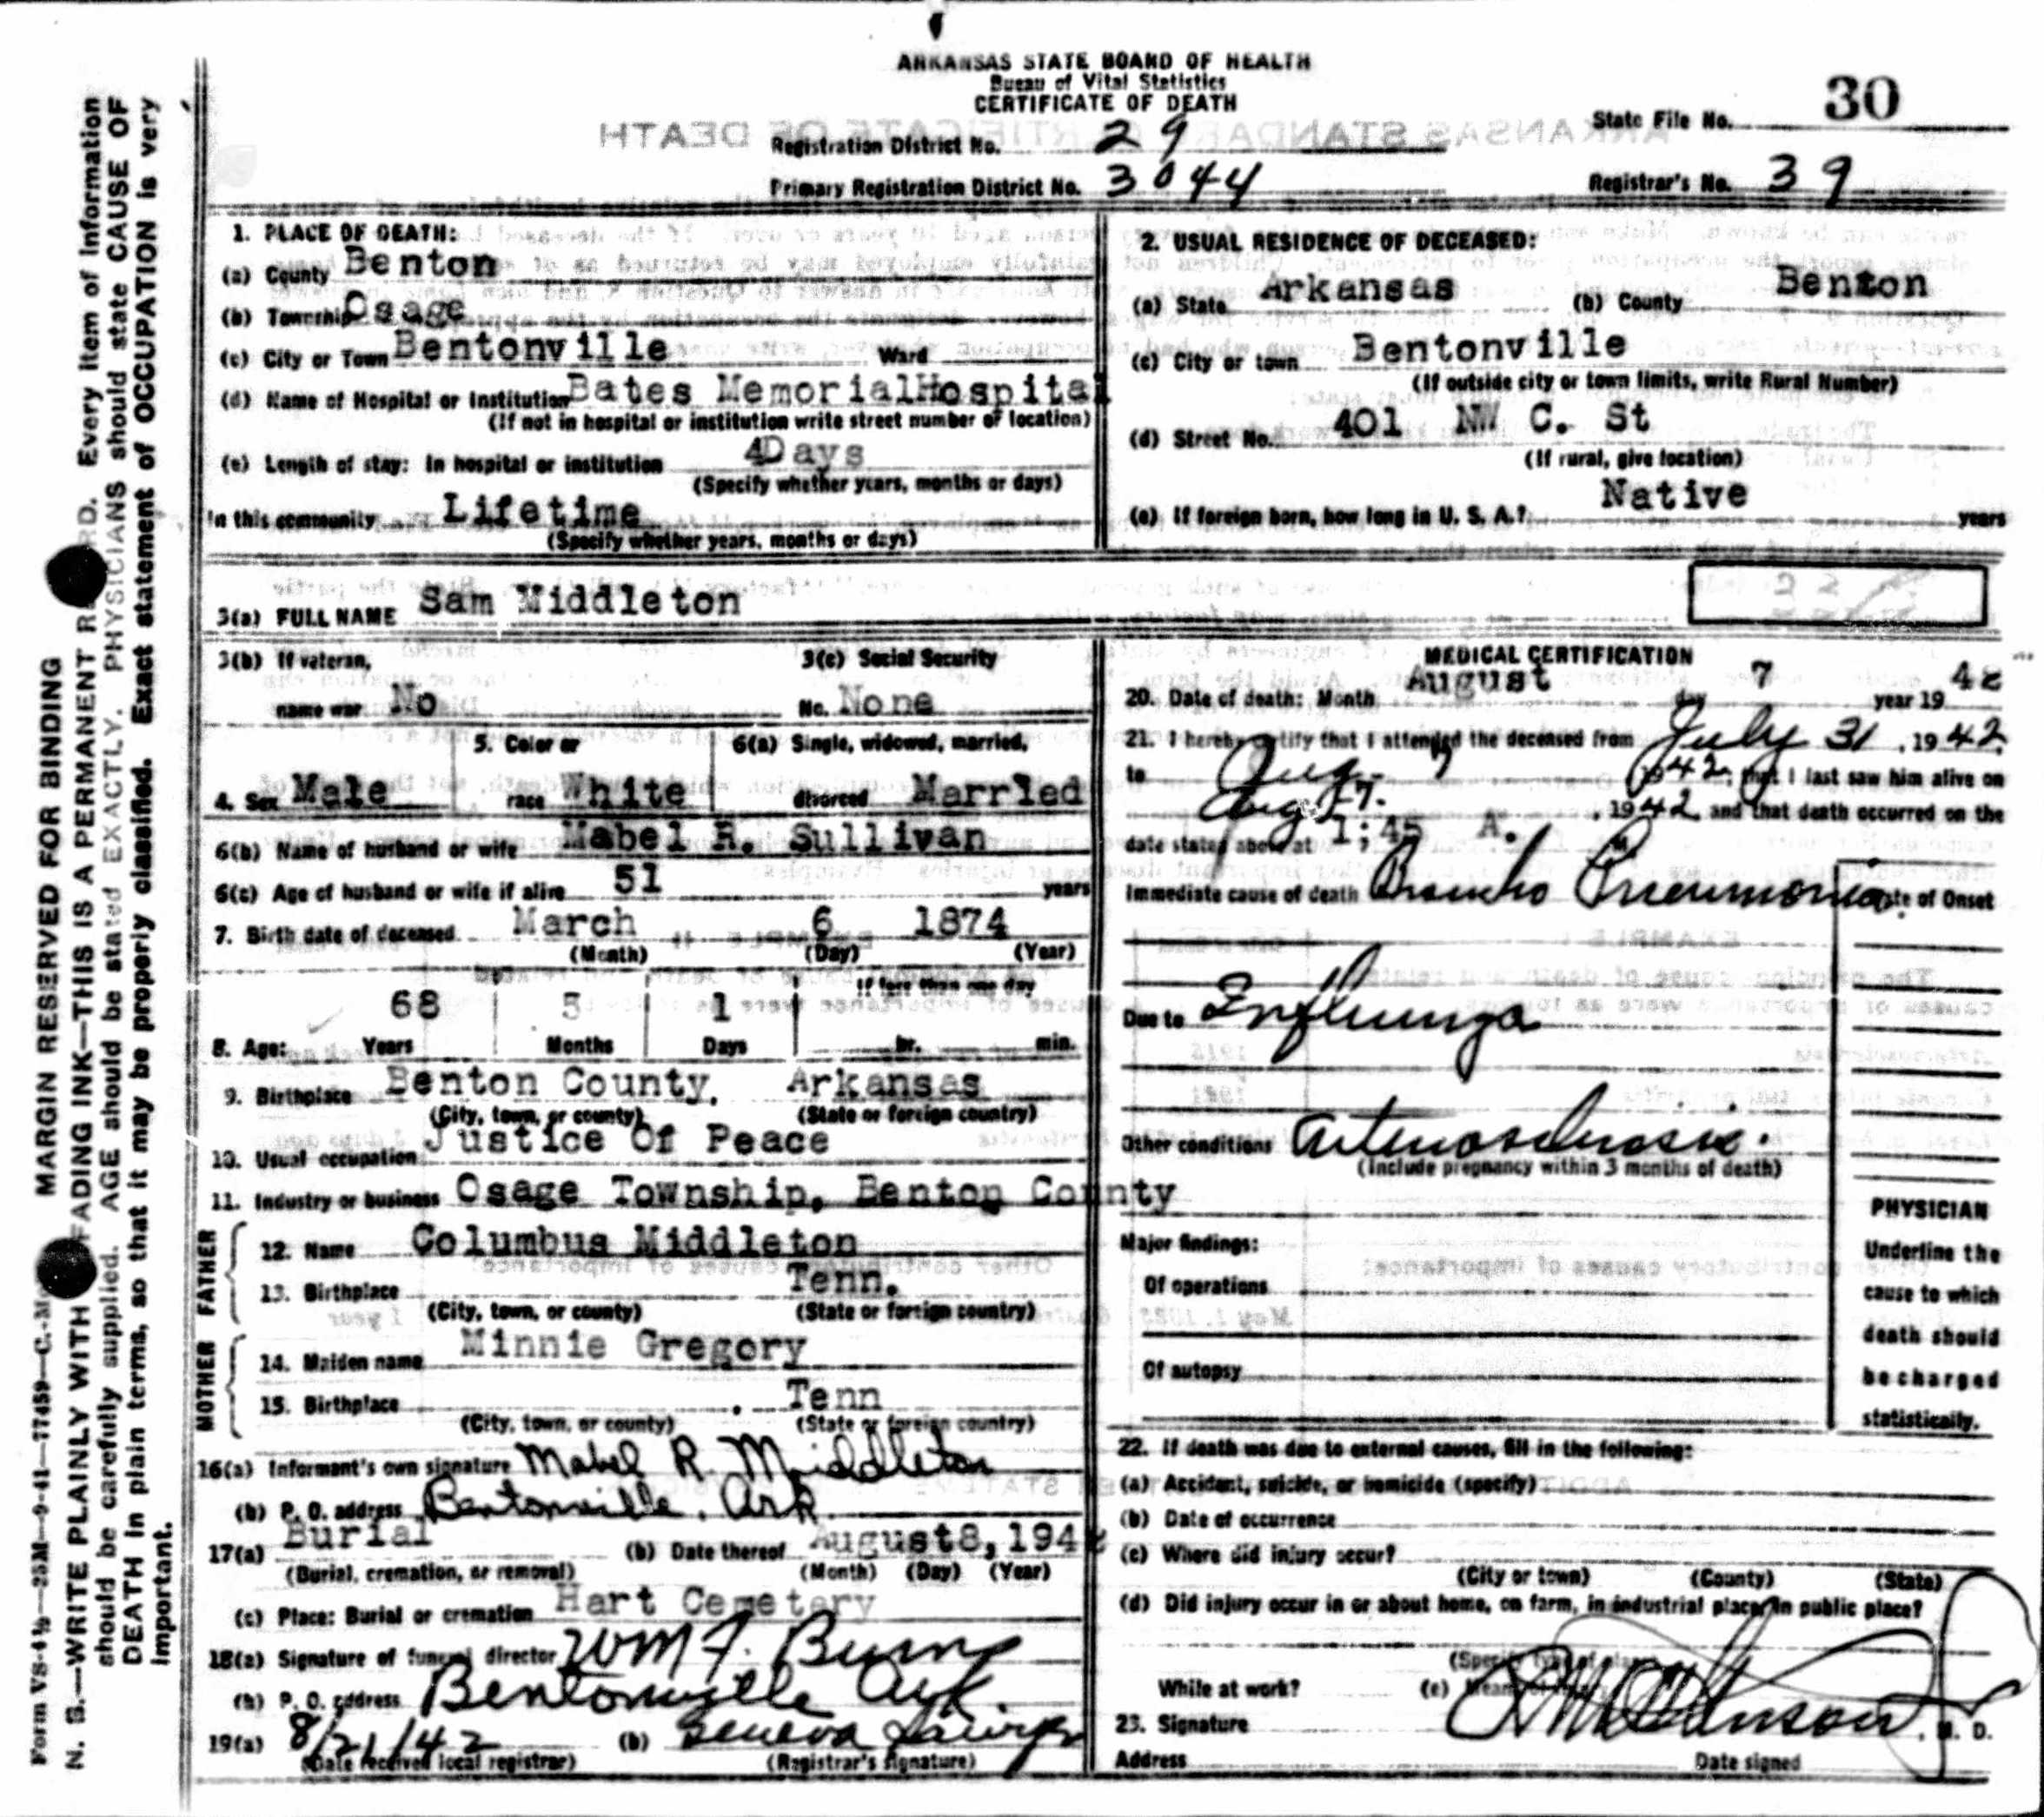 ARKANSAS STATE BOARD OF HEALTH
Bureau of Vital Statistics
CERTIFICATE OF DEATH
State File No. 30
Registration District No. 29
Primary Registration District No. 3044
Registrar's No. 39
1. PLACE OF DEATH:
(a) County Benton
(b) Township Osage
(c) City or Town Bentonville Ward
(d) Name of Hospital or Institution Bates MemorialHospital
(If not in hospital or institution write street number or location)
(e) Length of stay: In hospital or institution 4Days
(Specify whether years, months or days)
In this community Lifetime
(Specify whether years, months or days)
2. USUAL RESIDENCE OF DECEASED:
(a) State Arkansas (b) County Benton
(c) City or town Bentonville
(If outside city or town limits, write Rural Number)
(d) Street No. 401 NW C. St
(If rural, give location)
(e) If foreign born, how long in U. S. A.? Native years
3(a) FULL NAME Sam Middleton
3(b) If veteran, 3(c) Social Security
name war No No. None
5. Color or 6(a) Single, widowed, married,
4. Sex Male race White divorced Married
6(b) Name of husband or wife Mabel R. Sullivan
6(c) Age of husband or wife if alive 51 years
7. Birth date of deceased March 6 1874
(Month) (Day) (Year)
If less than one day
68 5 1
8. Age: Years Months Days hr. min.
9. Birthplace Benton County, Arkansas
(City, town, or county) (State or foreign country)
10. Usual occupation Justice Of Peace
11. Industry or business Osage Township, Benton County
FATHER
12. Name Columbus Middleton
13. Birthplace Tenn.
(City, town, or county) (State or foreign country)
MOTHER
14. Maiden name Minnie Gregory
15. Birthplace Tenn
(City, town, or county) (State or foreign country)
16(a) Informant's own signature Mabel R. Middleton
(b) P. O. address Bentonville, Ark.
17(a) Burial (b) Date thereof August8,1942
(Burial, cremation, or removal) (Month) (Day) (Year)
(c) Place: Burial or cremation Hart Cemetery
18(a) Signature of funeral director Wm J. Burns
(b) P. O. address Bentonville Ark.
19(a) 8/21/42 (b) Geneva
(Date received local registrar) (Registrar's signature)
MEDICAL CERTIFICATION
20. Date of death: Month August day 7 year 19 42
21. I hereby certify that I attended the deceased from July 31, 1942,
to Aug. 7 1942, that I last saw him alive on
Aug 7. , 1942 and that death occurred on the
date stated above at 1:45 A. M
Immediate cause of death Broncho Pneumonia Date of Onset
Due to Influenza
Other conditions Arteriosclerosis.
(Include pregnancy within 3 months of death)
Major findings:
Of operations
Of autopsy
PHYSICIAN
Underline the
cause to which
death should
be charged
statistically.
22. If death was due to external causes, fill in the following:
(a) Accident, suicide, or homicide (specify)
(b) Date of occurrence
(c) Where did injury occur?
(City or town) (County) (State)
(d) Did injury occur in or about home, on farm, in industrial place, in public place?
(Specify type of place)
While at work? (e) Means of
23. Signature M. D.
Address Date signed
MARGIN RESERVED FOR BINDING
N. B.—WRITE PLAINLY WITH FADING INK—THIS IS A PERMANENT RECORD. Every item of information
should be carefully supplied. AGE should be stated EXACTLY. PHYSICIANS should state CAUSE OF
DEATH in plain terms, so that it may be properly classified. Exact statement of OCCUPATION is very
important.
Form VS-4½—25M—9-41—77459—C.-M